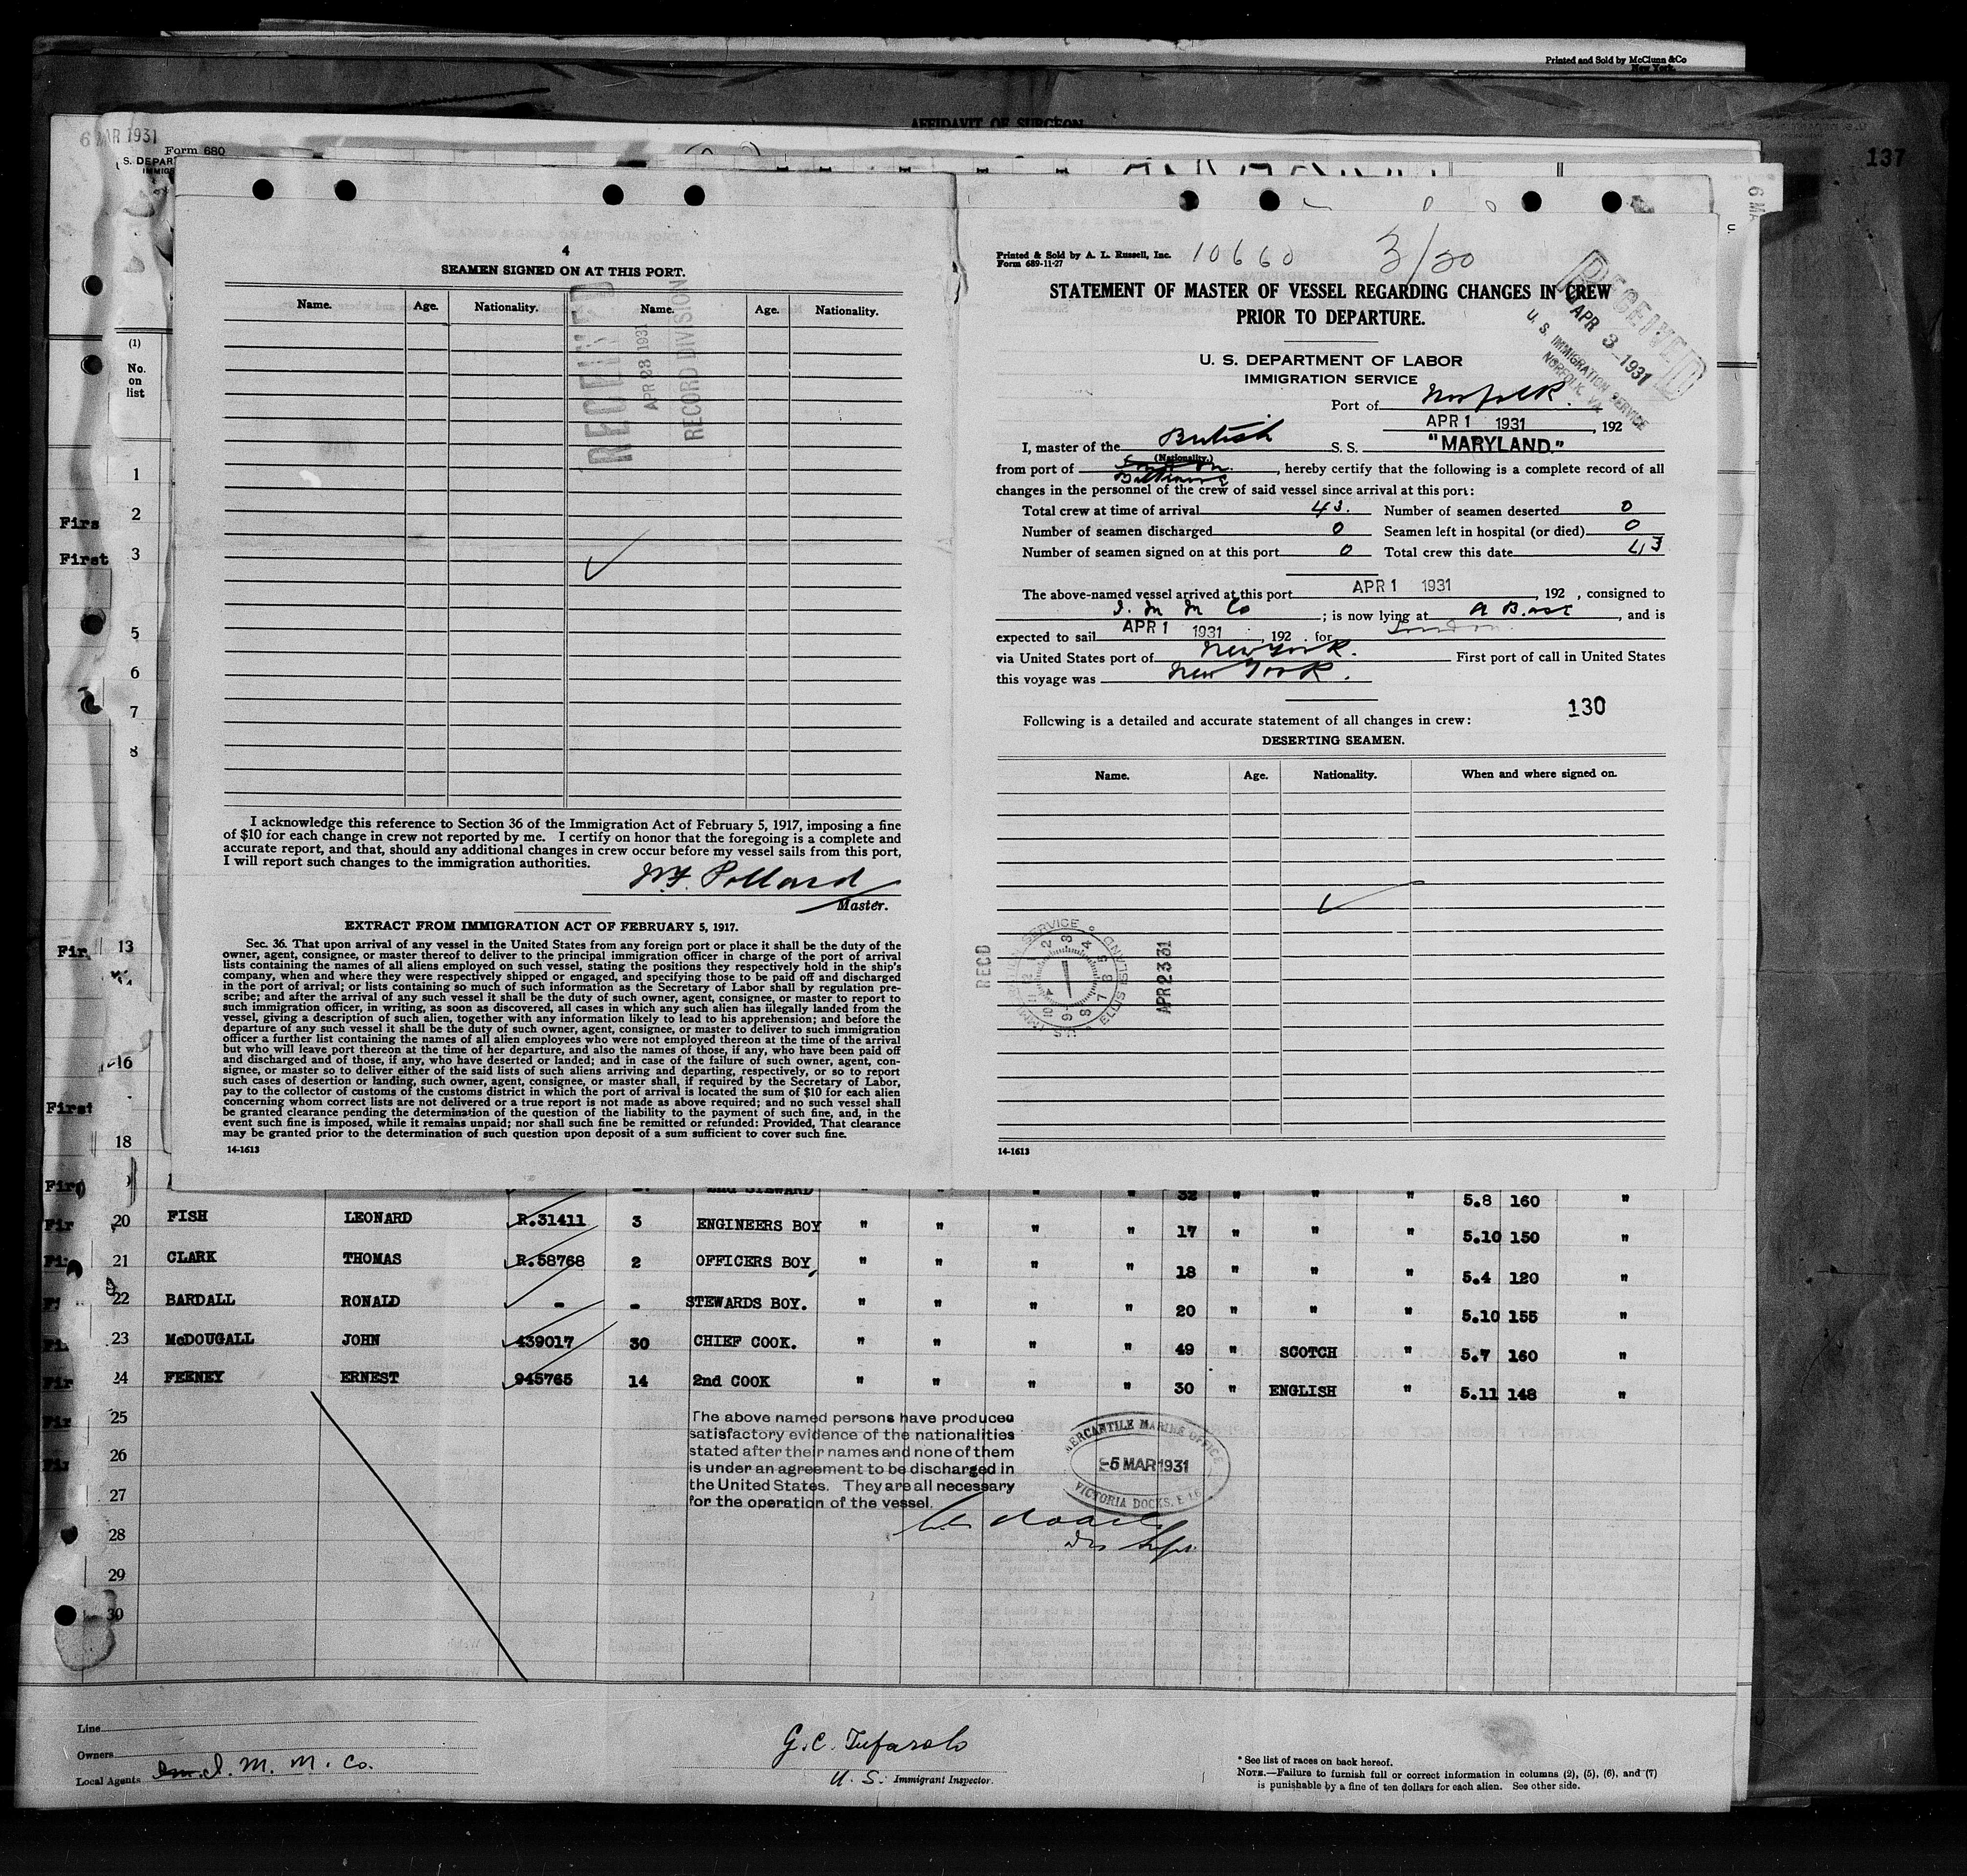 Printed and Sold by McClunn &Co
New York.
AFFIDAVIT OF SURGEON
137
6 MAR 1931
Form 680
S. DEPAR
IMMIG
(1)
No.
on
list
4
SEAMEN SIGNED ON AT THIS PORT.
Name. Age. Nationality. Name. Age. Nationality.
RECEIVED
APR 23 1931
RECORD DIVISION
I acknowledge this reference to Section 36 of the Immigration Act of February 5, 1917, imposing a fine
of $10 for each change in crew not reported by me. I certify on honor that the foregoing is a complete and
accurate report, and that, should any additional changes in crew occur before my vessel sails from this port,
I will report such changes to the immigration authorities.
Pollard
Master.
EXTRACT FROM IMMIGRATION ACT OF FEBRUARY 5, 1917.
Sec. 36. That upon arrival of any vessel in the United States from any foreign port or place it shall be the duty of the
owner, agent, consignee, or master thereof to deliver to the principal immigration officer in charge of the port of arrival
lists containing the names of all aliens employed on such vessel, stating the positions they respectively hold in the ship's
company, when and where they were respectively shipped or engaged, and specifying those to be paid off and discharged
in the port of arrival; or lists containing so much of such information as the Secretary of Labor shall by regulation pre-
scribe; and after the arrival of any such vessel it shall be the duty of such owner, agent, consignee, or master to report to
such immigration officer, in writing, as soon as discovered, all cases in which any such alien has illegally landed from the
vessel, giving a description of such alien, together with any information likely to lead to his apprehension; and before the
departure of any such vessel it shall be the duty of such owner, agent, consignee, or master to deliver to such immigration
officer a further list containing the names of all alien employees who were not employed thereon at the time of the arrival
but who will leave port thereon at the time of her departure, and also the names of those, if any, who have been paid off
and discharged and of those, if any, who have deserted or landed; and in case of the failure of such owner, agent, con-
signee, or master so to deliver either of the said lists of such aliens arriving and departing, respectively, or so to report
such cases of desertion or landing, such owner, agent, consignee, or master shall, if required by the Secretary of Labor,
pay to the collector of customs of the customs district in which the port of arrival is located the sum of $10 for each alien
concerning whom correct lists are not delivered or a true report is not made as above required; and no such vessel shall
be granted clearance pending the determination of the question of the liability to the payment of such fine, and, in the
event such fine is imposed, while it remains unpaid; nor shall such fine be remitted or refunded: Provided, That clearance
may be granted prior to the determination of such question upon deposit of a sum sufficient to cover such fine.
14-1613
Printed & Sold by A. L. Russell, Inc. 10660 3/20
Form 689-11-27
STATEMENT OF MASTER OF VESSEL REGARDING CHANGES IN CREW
PRIOR TO DEPARTURE.
RECEIVED
APR 3 1931
U. S. IMMIGRATION SERVICE
NORFOLK, VA.
U. S. DEPARTMENT OF LABOR
IMMIGRATION SERVICE
Port of Norfolk.
APR 1 1931, 192
I, master of the British S. S. "MARYLAND."
(Nationality.)
from port of London. Baltimore, hereby certify that the following is a complete record of all
changes in the personnel of the crew of said vessel since arrival at this port:
Total crew at time of arrival 43. Number of seamen deserted 0
Number of seamen discharged 0 Seamen left in hospital (or died) 0
Number of seamen signed on at this port 0 Total crew this date 43
The above-named vessel arrived at this port APR 1 1931, 192 , consigned to
I. M M Co; is now lying at A Base, and is
expected to sail APR 1 1931, 192 . for London.
via United States port of New York. First port of call in United States
this voyage was New York.
130
Following is a detailed and accurate statement of all changes in crew:
DESERTING SEAMEN.
Name. Age. Nationality. When and where signed on.
RECD
APR 23 31
ELLIS ISLAND
14-1613
1
Firs 2
First 3
5
6
7
8
Fir 13
16
First
18
Fir 2nd STEWARD " " " " 32 " " " 5.8 160 "
Fir 20 FISH LEONARD R.31411 3 ENGINEERS BOY " " " " 17 " " " 5.10 150 "
Fi 21 CLARK THOMAS R.58768 2 OFFICERS BOY, " " " " 18 " " " 5.4 120 "
22 BARDALL RONALD - - STEWARDS BOY. " " " " 20 " " " 5.10 155 "
23 McDOUGALL JOHN 439017 30 CHIEF COOK. " " " " 49 " SCOTCH " 5.7 160 "
Fir 24 FEENEY ERNEST 945765 14 2nd COOK " " " " 30 " ENGLISH " 5.11 148 "
25
26
27
28
29
30
The above named persons have produced
satisfactory evidence of the nationalities
stated after their names and none of them
is under an agreement to be discharged in
the United States. They are all necessary
for the operation of the vessel.
MERCANTILE MARINE OFFICE
-5 MAR 1931
VICTORIA DOCKS, E 16
Line
Owners
Local Agents I. M. M. Co.
G. C. Tufarolo
U. S. Immigrant Inspector.
* See list of races on back hereof.
NOTE.—Failure to furnish full or correct information in columns (2), (5), (6), and (7)
is punishable by a fine of ten dollars for each alien. See other side.